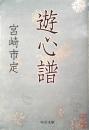 遊心譜
宮崎市定
中公文庫